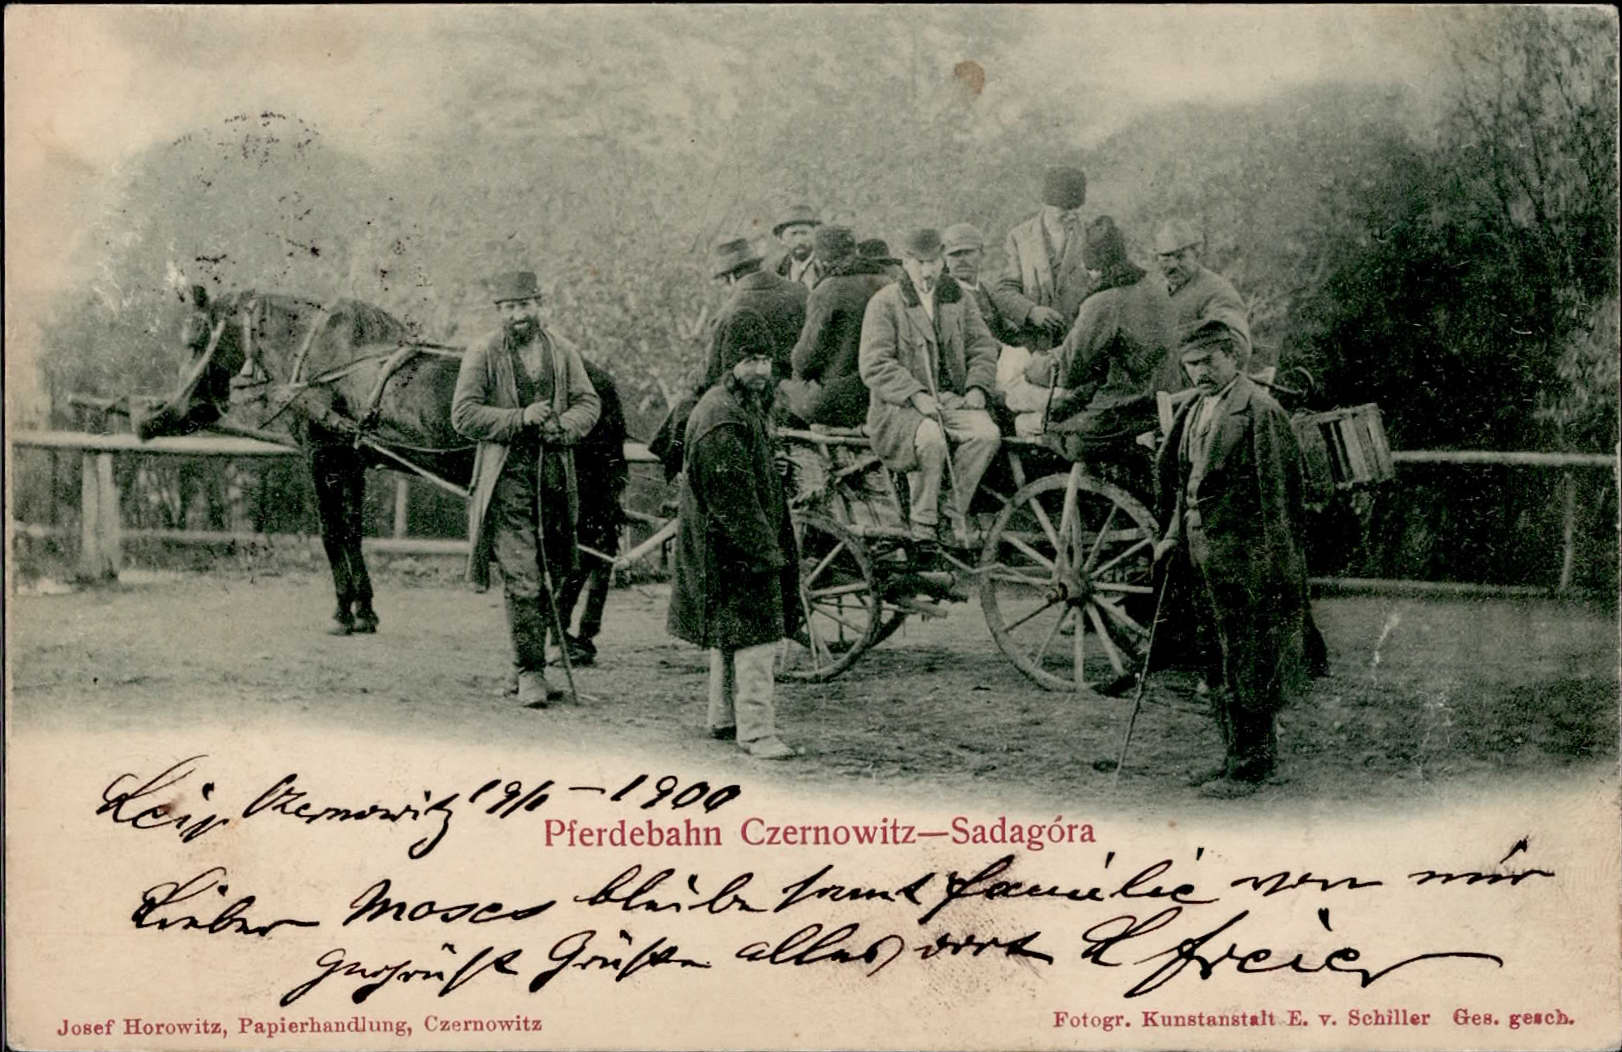 Czernowitz 19/1 – 1900
Pferdebahn Czernowitz—Sadagóra
Lieber Moses bleibe samt familie von mir
gegrüßt Grüße alles dort L Freier
Josef Horowitz, Papierhandlung, Czernowitz
Fotogr. Kunstanstalt E. v. Schiller Ges. gesch.